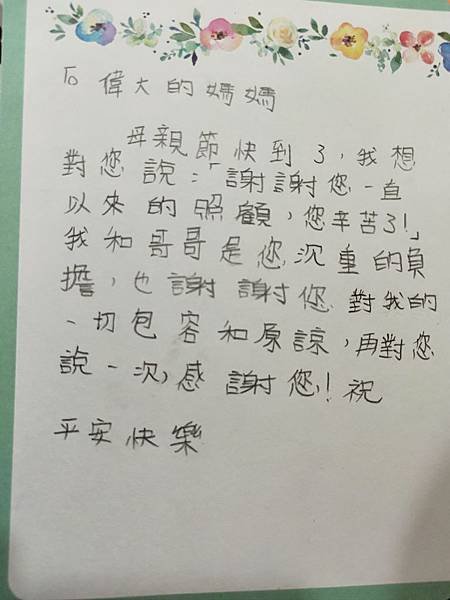 To 偉大的媽媽
母親節快到了，我想
對您說：「謝謝您一直
以來的照顧，您辛苦了！」
我和哥哥是您沉重的負
擔，也謝謝您對我的
一切包容和原諒，再對您
說一次，感謝您！祝
平安快樂